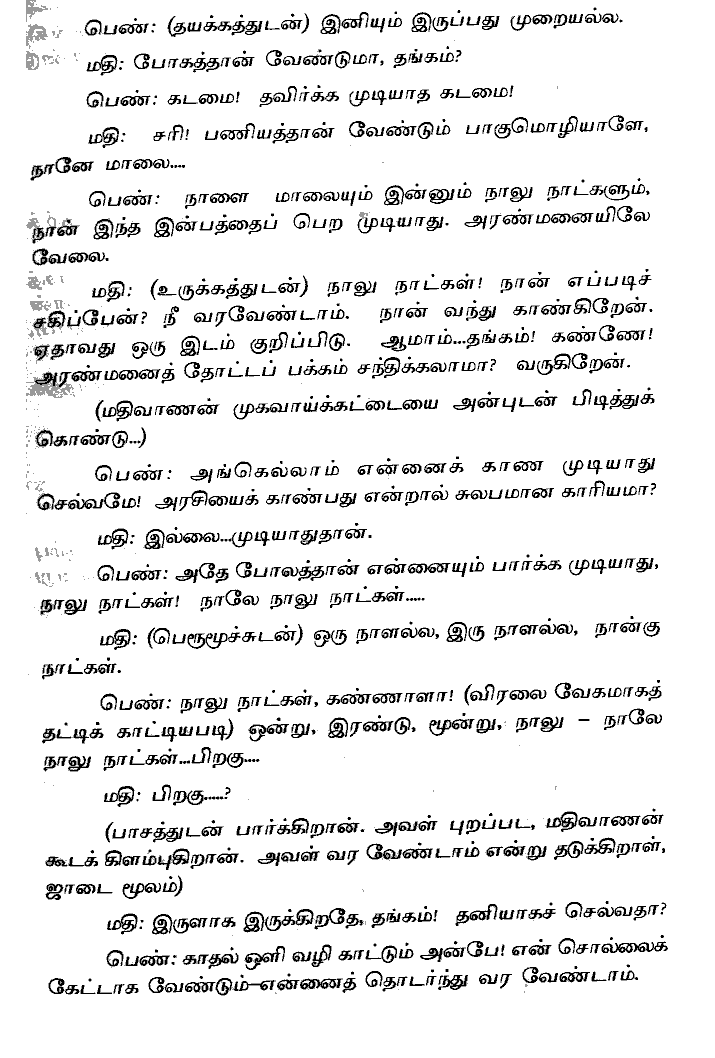 பெண்: (தயக்கத்துடன்) இனியும் இருப்பது முறையல்ல.
மதி: போகத்தான் வேண்டுமா, தங்கம்?
பெண்: கடமை! தவிர்க்க முடியாத கடமை!
மதி: சரி! பணியத்தான் வேண்டும் பாகுமொழியாளே,
நானே மாலை....
பெண்: நாளை மாலையும் இன்னும் நாலு நாட்களும்,
நான் இந்த இன்பத்தைப் பெற முடியாது. அரண்மனையிலே
வேலை.
மதி: (உருக்கத்துடன்) நாலு நாட்கள்! நான் எப்படிச்
சகிப்பேன்? நீ வரவேண்டாம். நான் வந்து காண்கிறேன்.
ஏதாவது ஒரு இடம் குறிப்பிடு. ஆமாம்...தங்கம்! கண்ணே!
அரண்மனைத் தோட்டப் பக்கம் சந்திக்கலாமா? வருகிறேன்.
(மதிவாணன் முகவாய்க்கட்டையை அன்புடன் பிடித்துக்
கொண்டு...)
பெண்: அங்கெல்லாம் என்னைக் காண முடியாது
செல்வமே! அரசியைக் காண்பது என்றால் சுலபமான காரியமா?
மதி: இல்லை...முடியாதுதான்.
பெண்: அதே போலத்தான் என்னையும் பார்க்க முடியாது,
நாலு நாட்கள்! நாலே நாலு நாட்கள்.....
மதி: (பெருமூச்சுடன்) ஒரு நாளல்ல, இரு நாளல்ல, நான்கு
நாட்கள்.
பெண்: நாலு நாட்கள், கண்ணாளா! (விரலை வேகமாகத்
தட்டிக் காட்டியபடி) ஒன்று, இரண்டு, மூன்று, நாலு – நாலே
நாலு நாட்கள்...பிறகு....
மதி: பிறகு.....?
(பாசத்துடன் பார்க்கிறான். அவள் புறப்பட, மதிவாணன்
கூடக் கிளம்புகிறான். அவள் வர வேண்டாம் என்று தடுக்கிறாள்,
ஜாடை மூலம்)
மதி: இருளாக இருக்கிறதே, தங்கம்! தனியாகச் செல்வதா?
பெண்: காதல் ஒளி வழி காட்டும் அன்பே! என் சொல்லைக்
கேட்டாக வேண்டும்–என்னைத் தொடர்ந்து வர வேண்டாம்.